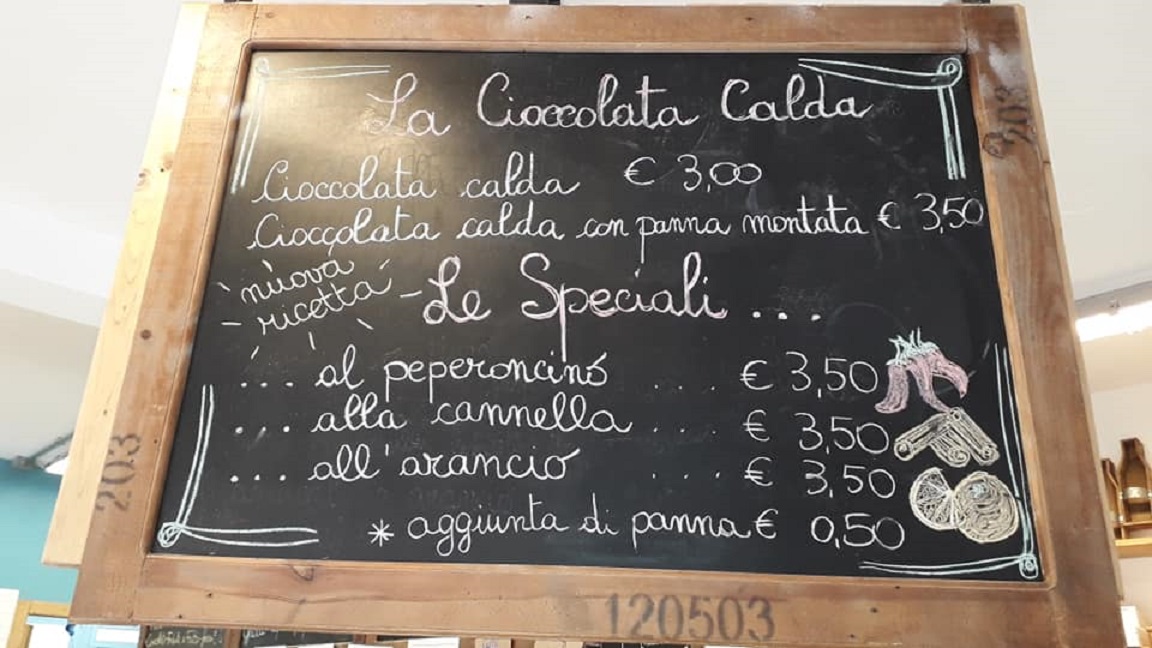 La Cioccolata Calda
Cioccolata calda € 3,00
Cioccolata calda con panna montata € 3,50
nuova
ricetta
Le Speciali ...
... al peperoncino ... € 3,50
... alla cannella ... € 3,50
... all'arancio ... € 3,50
* aggiunta di panna € 0,50
203
203
120503